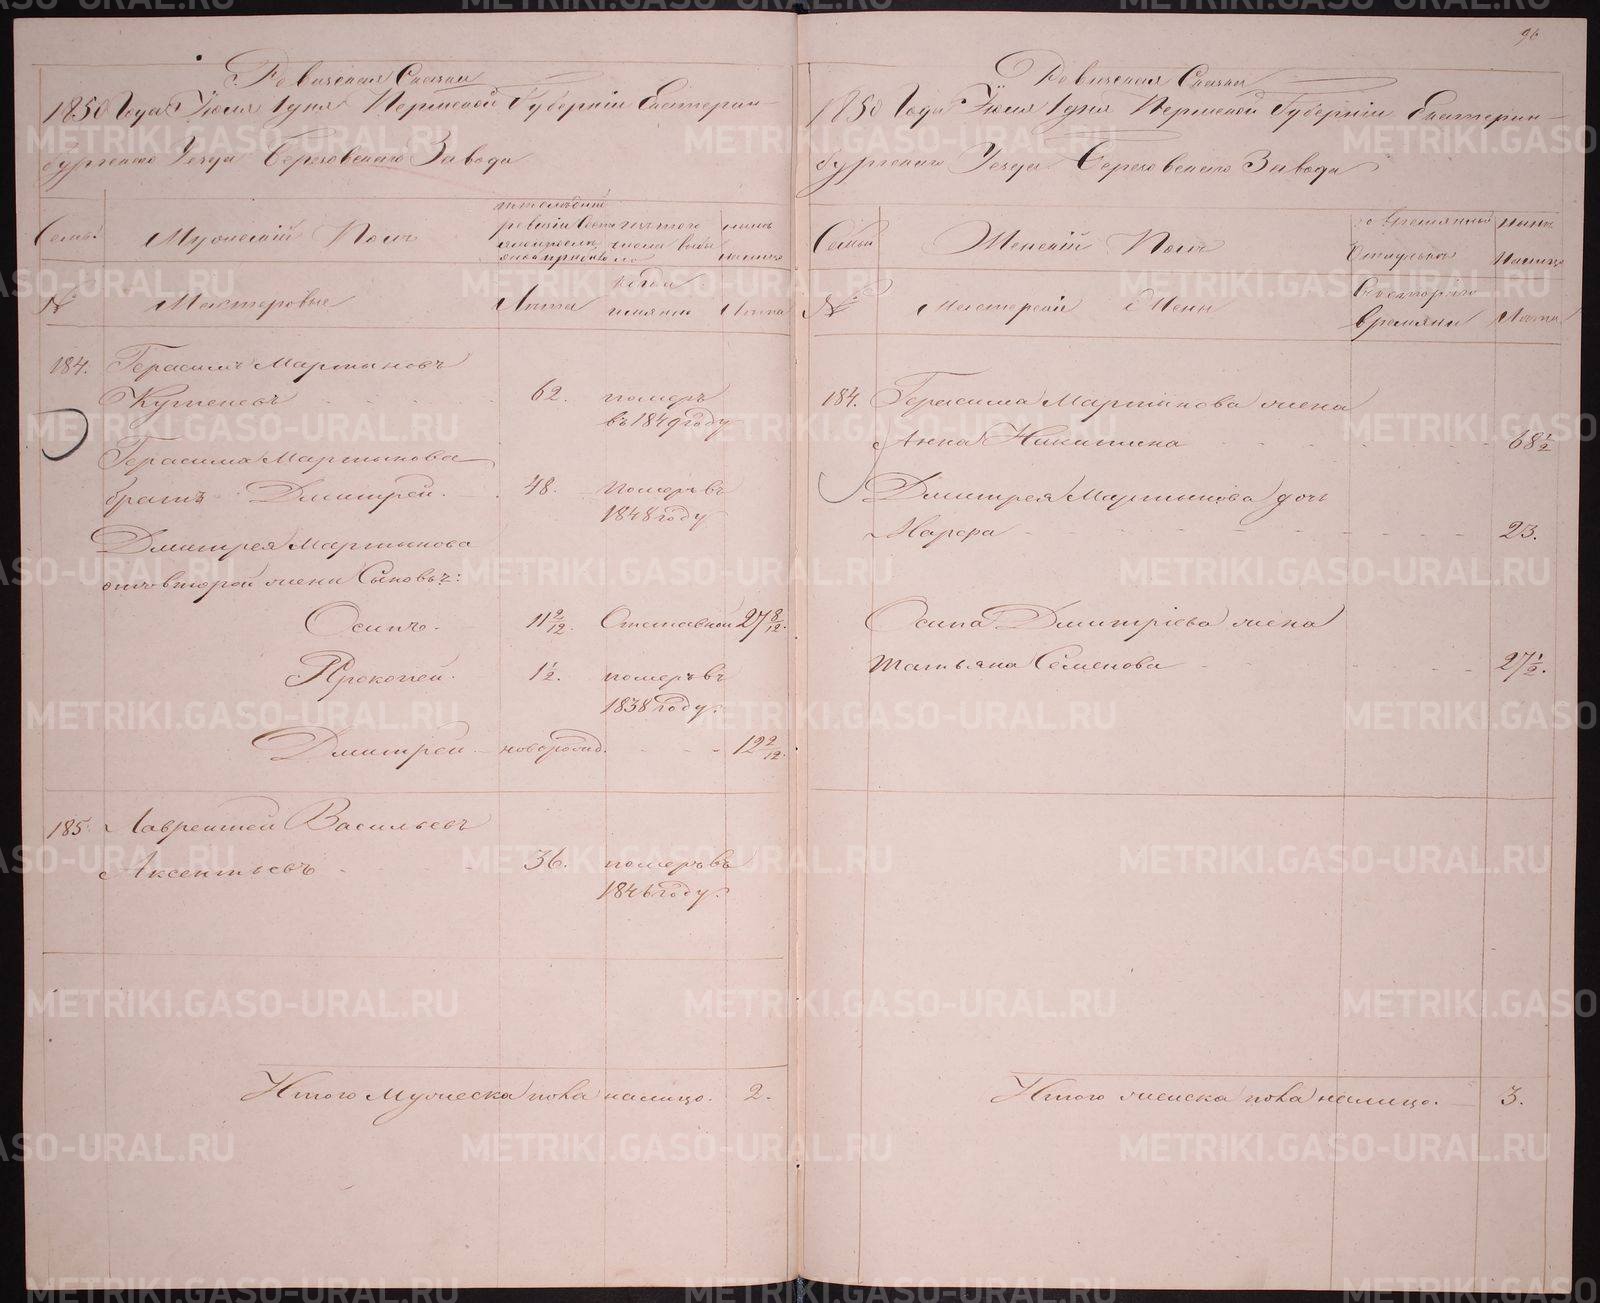 Ревизская Сказка
1850 Года Июля 1 дня Пермской Губернiи Екатерин-
бургскаго Уезда Березовскаго Завода
Семьи Мужескiй Полъ
№ Мастеровые
Лета
когда именно
Лета
184. Герасимъ Мартыновъ
62. померъ
въ 1849 году
Герасима Мартынова
братъ Дмитрей. 48. померъ въ
1848 году
Дмитрея Мартынова
отъ второй жены Сыновья:
Осипъ. 11 2/12. Отставной 27 8/12.
Прокопей. 1 1/2. померъ въ
1838 году.
Дмитрей новорожд. 12 2/12.
185. Лаврентей Васильевъ
Аксентьевъ 36. померъ въ
1846 году.
Итого Мужеска пола налицо. 2.
96
Ревизская Сказка
1850 Года Июля 1 дня Пермской Губернiи Екатерин-
бургскаго Уезда Березовскаго Завода
Семьи Женскiй Полъ
Во временной отлучке
ныне на лицо
№ Мастерскiй Жены
Съ котораго времяни
Лета
184. Герасима Мартынова жена
Анна Никитина 68 1/2
Дмитрея Мартынова дочь
Марфа 23.
Осипа Дмитрiева жена
Татьяна Семенова 27 1/2.
Итого женска пола налицо. 3.
METRIKI.GASO-URAL.RU